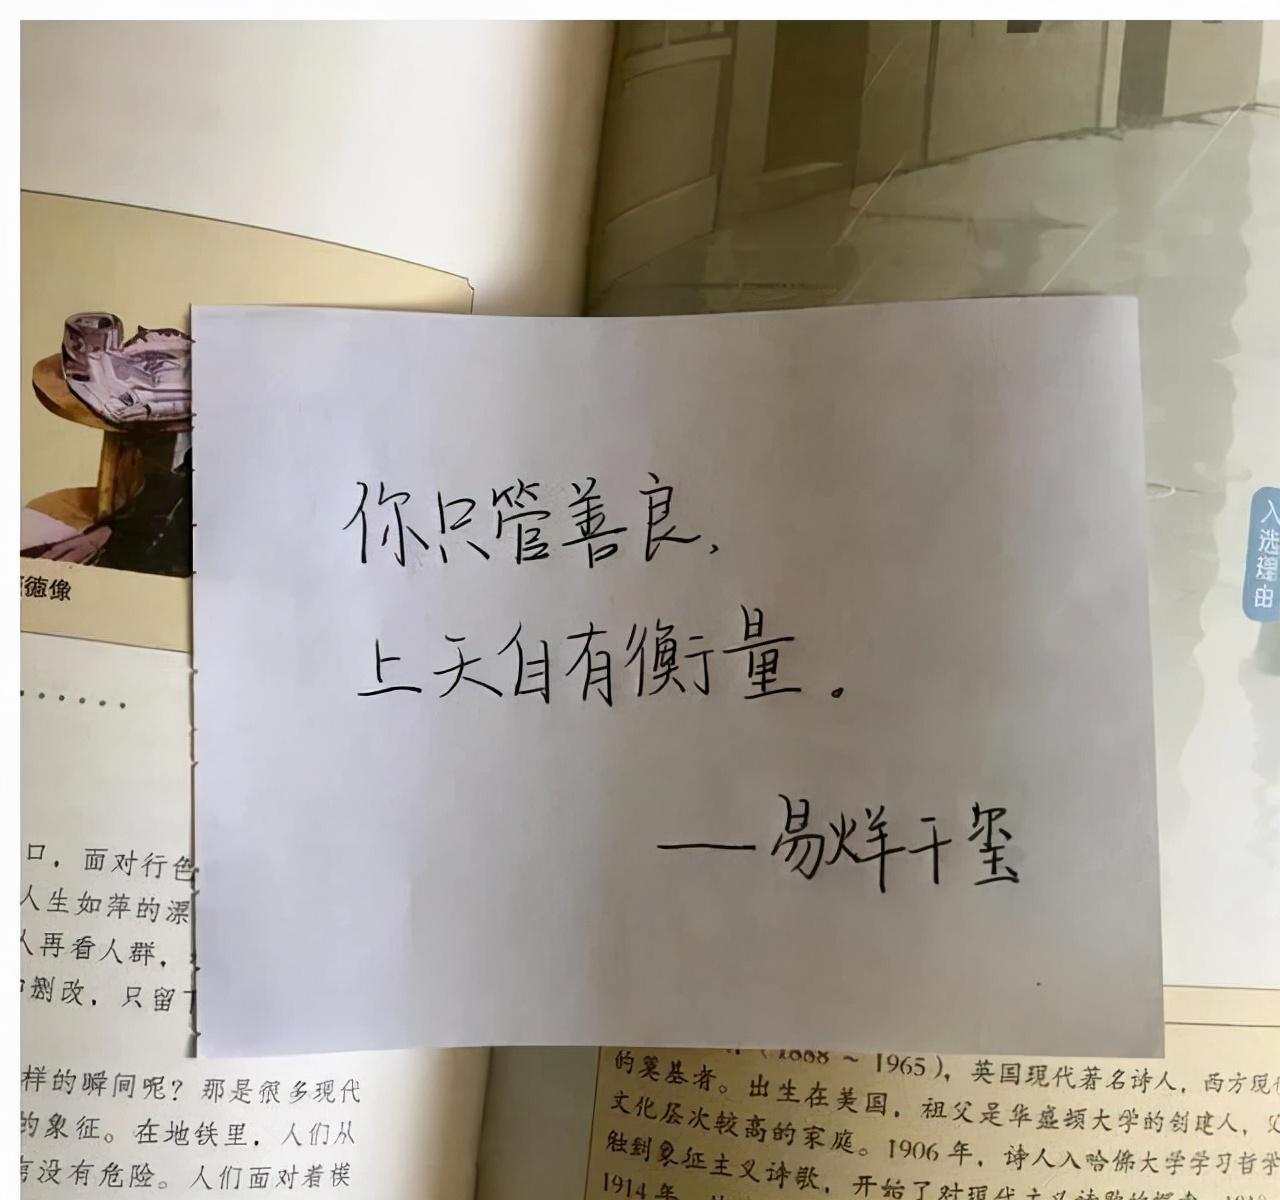 入选理由
你只管善良,
上天自有衡量。
——易烊千玺
德像
······
口，面对行色
人生如萍的漂
人再看人群，
删改，只留下
样的瞬间呢？那是很多现代
的象征。在地铁里，人们从
没有危险。人们面对着模
（1888～1965），英国现代著名诗人，西方现
的奠基者。出生在美国，祖父是华盛顿大学的创建人，父
文化层次较高的家庭。1906年，诗人入哈佛大学学习哲学
触到象征主义诗歌，开始了对现代主义诗歌的探索
1914年